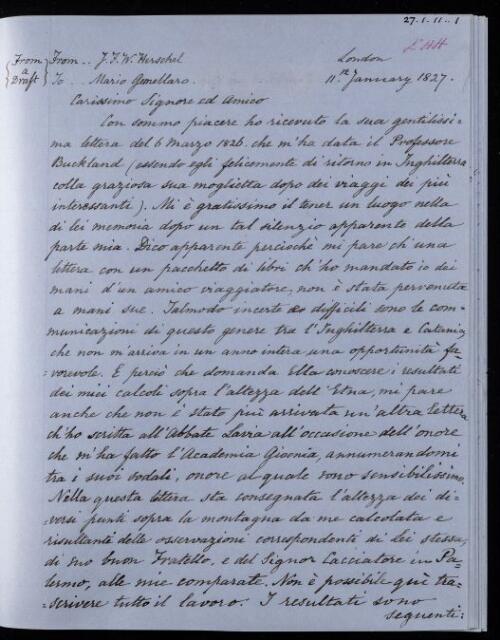 27.1.11..1
L'HH
From a Draft
From .. J.F.W. Herschel
London
To .. Mario Gemellaro.
11.th January 1827.
Carissimo Signore ed Amico
Con sommo piacere ho ricevuto la sua gentilissi-
ma lettera del 6 Marzo 1826. che m'ha data il Professore
Buckland (essendo egli felicemente di ritorno in Inghilterra
colla graziosa sua moglietta dopo dei viaggi dei più
interessanti). Mi è gratissimo il tener un luogo nella
di lei memoria dopo un tal silenzio apparente della
parte mia. Dico apparente perciochè mi pare ch'una
lettera con un pacchetto di libri ch'ho mandato io dei
mani d'un amico viaggiatore, non è stata pervenuta
a mani sue. Talmodo incerte e difficili sono le com-
municazioni di questo genere tra l'Inghilterra e Catania,
che non m'arriva in un anno intera una opportunità fa-
=vorevole. E perciò che domanda Ella conoscere i resultati
dei miei calcoli sopra l'altezza dell'Etna, mi pare
anche che non è stato più arrivata un'altra lettera
ch'ho scritta all'Abbate Lavia all'occasione dell'onore
che m'ha fatto l'Academia Gioenia, annumerandomi
tra i suoi sodali, onore al quale sono sensibilissimo.
Nella questa lettera sta consegnata l'altezza dei di-
=versi punti sopra la montagna da me calcolata e
risultanti delle osservazioni corrispondenti di Lei stessa,
di suo buon Fratello, e del Signor Cacciatore in Pa-
lermo, alle mie comparate. Non è possibile qui tra-
=scrivere tutto il lavoro. I resultati sono
seguenti: